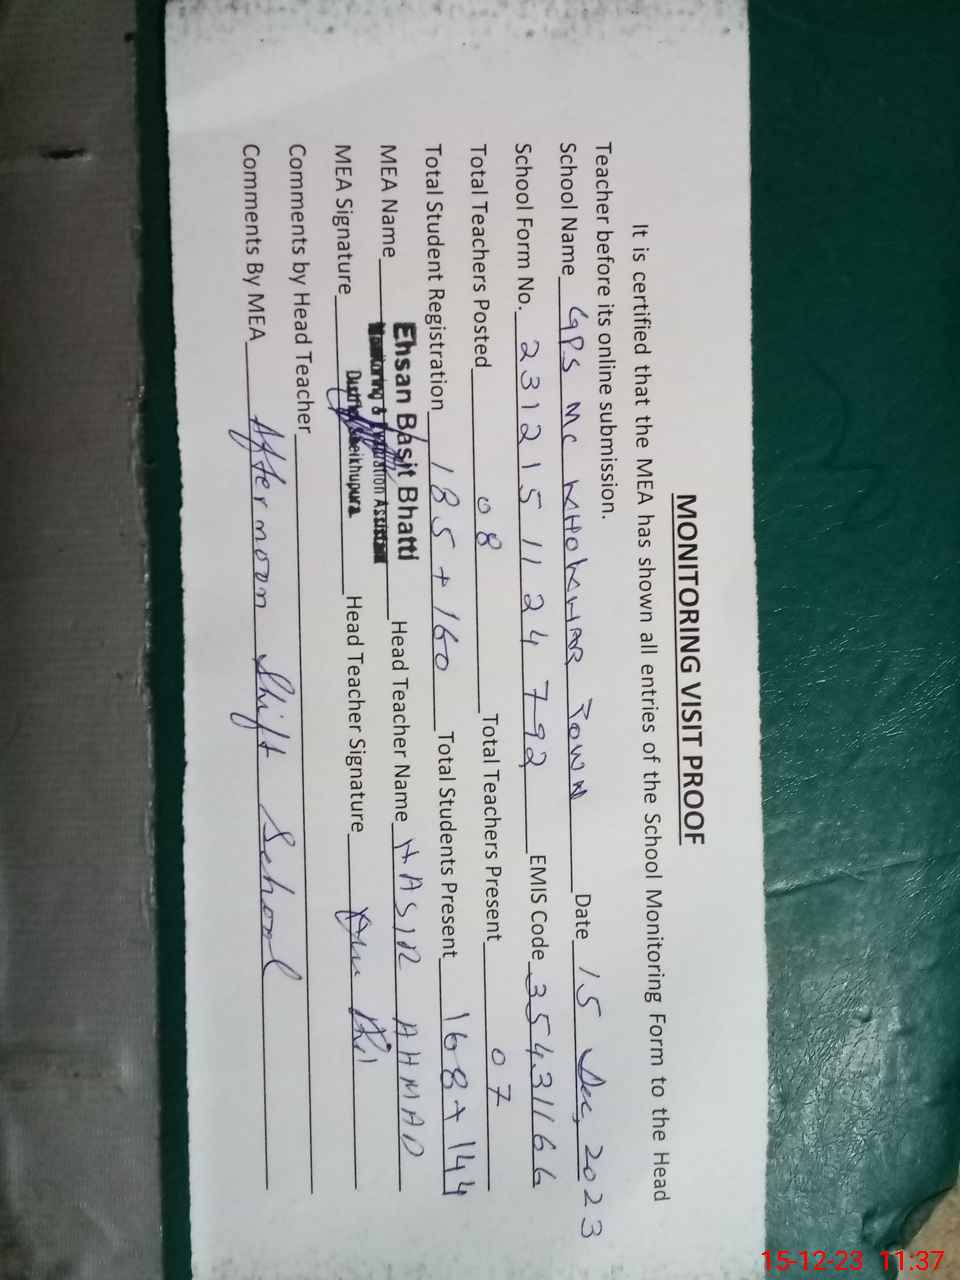 MONITORING VISIT PROOF
It is certified that the MEA has shown all entries of the School Monitoring Form to the Head
Teacher before its online submission.
School Name GPS MC KHOKHAR TOWN Date 15 Dec, 2023
School Form No. 23121511124792 EMIS Code 35431166
Total Teachers Posted 08 Total Teachers Present 07
Total Student Registration 185+160 Total Students Present 168+144
MEA Name Ehsan Basit Bhatti Head Teacher Name YASIR AHMAD
Monitoring & Evaluation Assistant
District Sheikhupura
MEA Signature Head Teacher Signature
Comments by Head Teacher
Comments By MEA Afternoon Shift School
15-12-23 11:37